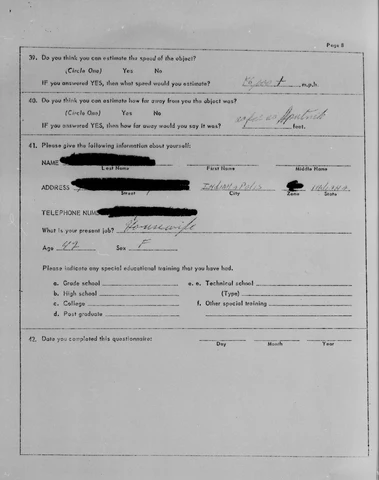 Page 8
39. Do you think you can estimate the speed of the object?
(Circle One) Yes No
IF you answered YES, then what speed would you estimate? m.p.h.
40. Do you think you can estimate how far away from you the object was?
(Circle One) Yes No
IF you answered YES, then how far away would you say it was? as far as Sputnik feet.
41. Please give the following information about yourself:
NAME
Last Name First Name Middle Name
ADDRESS Indianapolis Indiana
Street City Zone State
TELEPHONE NUM
What is your present job? Housewife
Age 47 Sex F
Please indicate any special educational training that you have had.
a. Grade school e. Technical school
b. High school (Type)
c. College f. Other special training
d. Post graduate
42. Date you completed this questionnaire:
Day Month Year